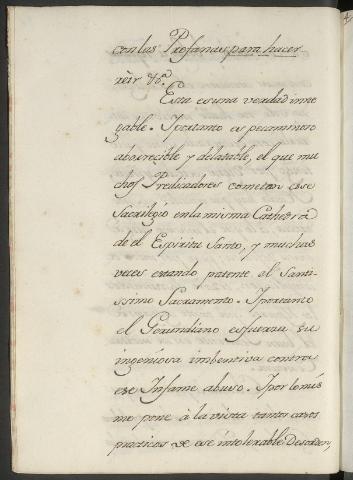 con las Profanas para hacer
reir &c.ª
Esta es una verdad inne
gable. I portanto es pecaminoso
aborrecible y delatable, el que mu
chos Predicadores cometan ese
Sacrilegio en la misma Cathedra
de el Espiritu Santo, y muchas
veces estando patente el Santi-
ssimo Sacramento. I portanto
el Gerundiano esfuerza su
ingeniosa imbentiva contra
ese Infame abuso. I por lo mis
mo pone à la vista tantos casos
practicos de ese intolerable Desorden,